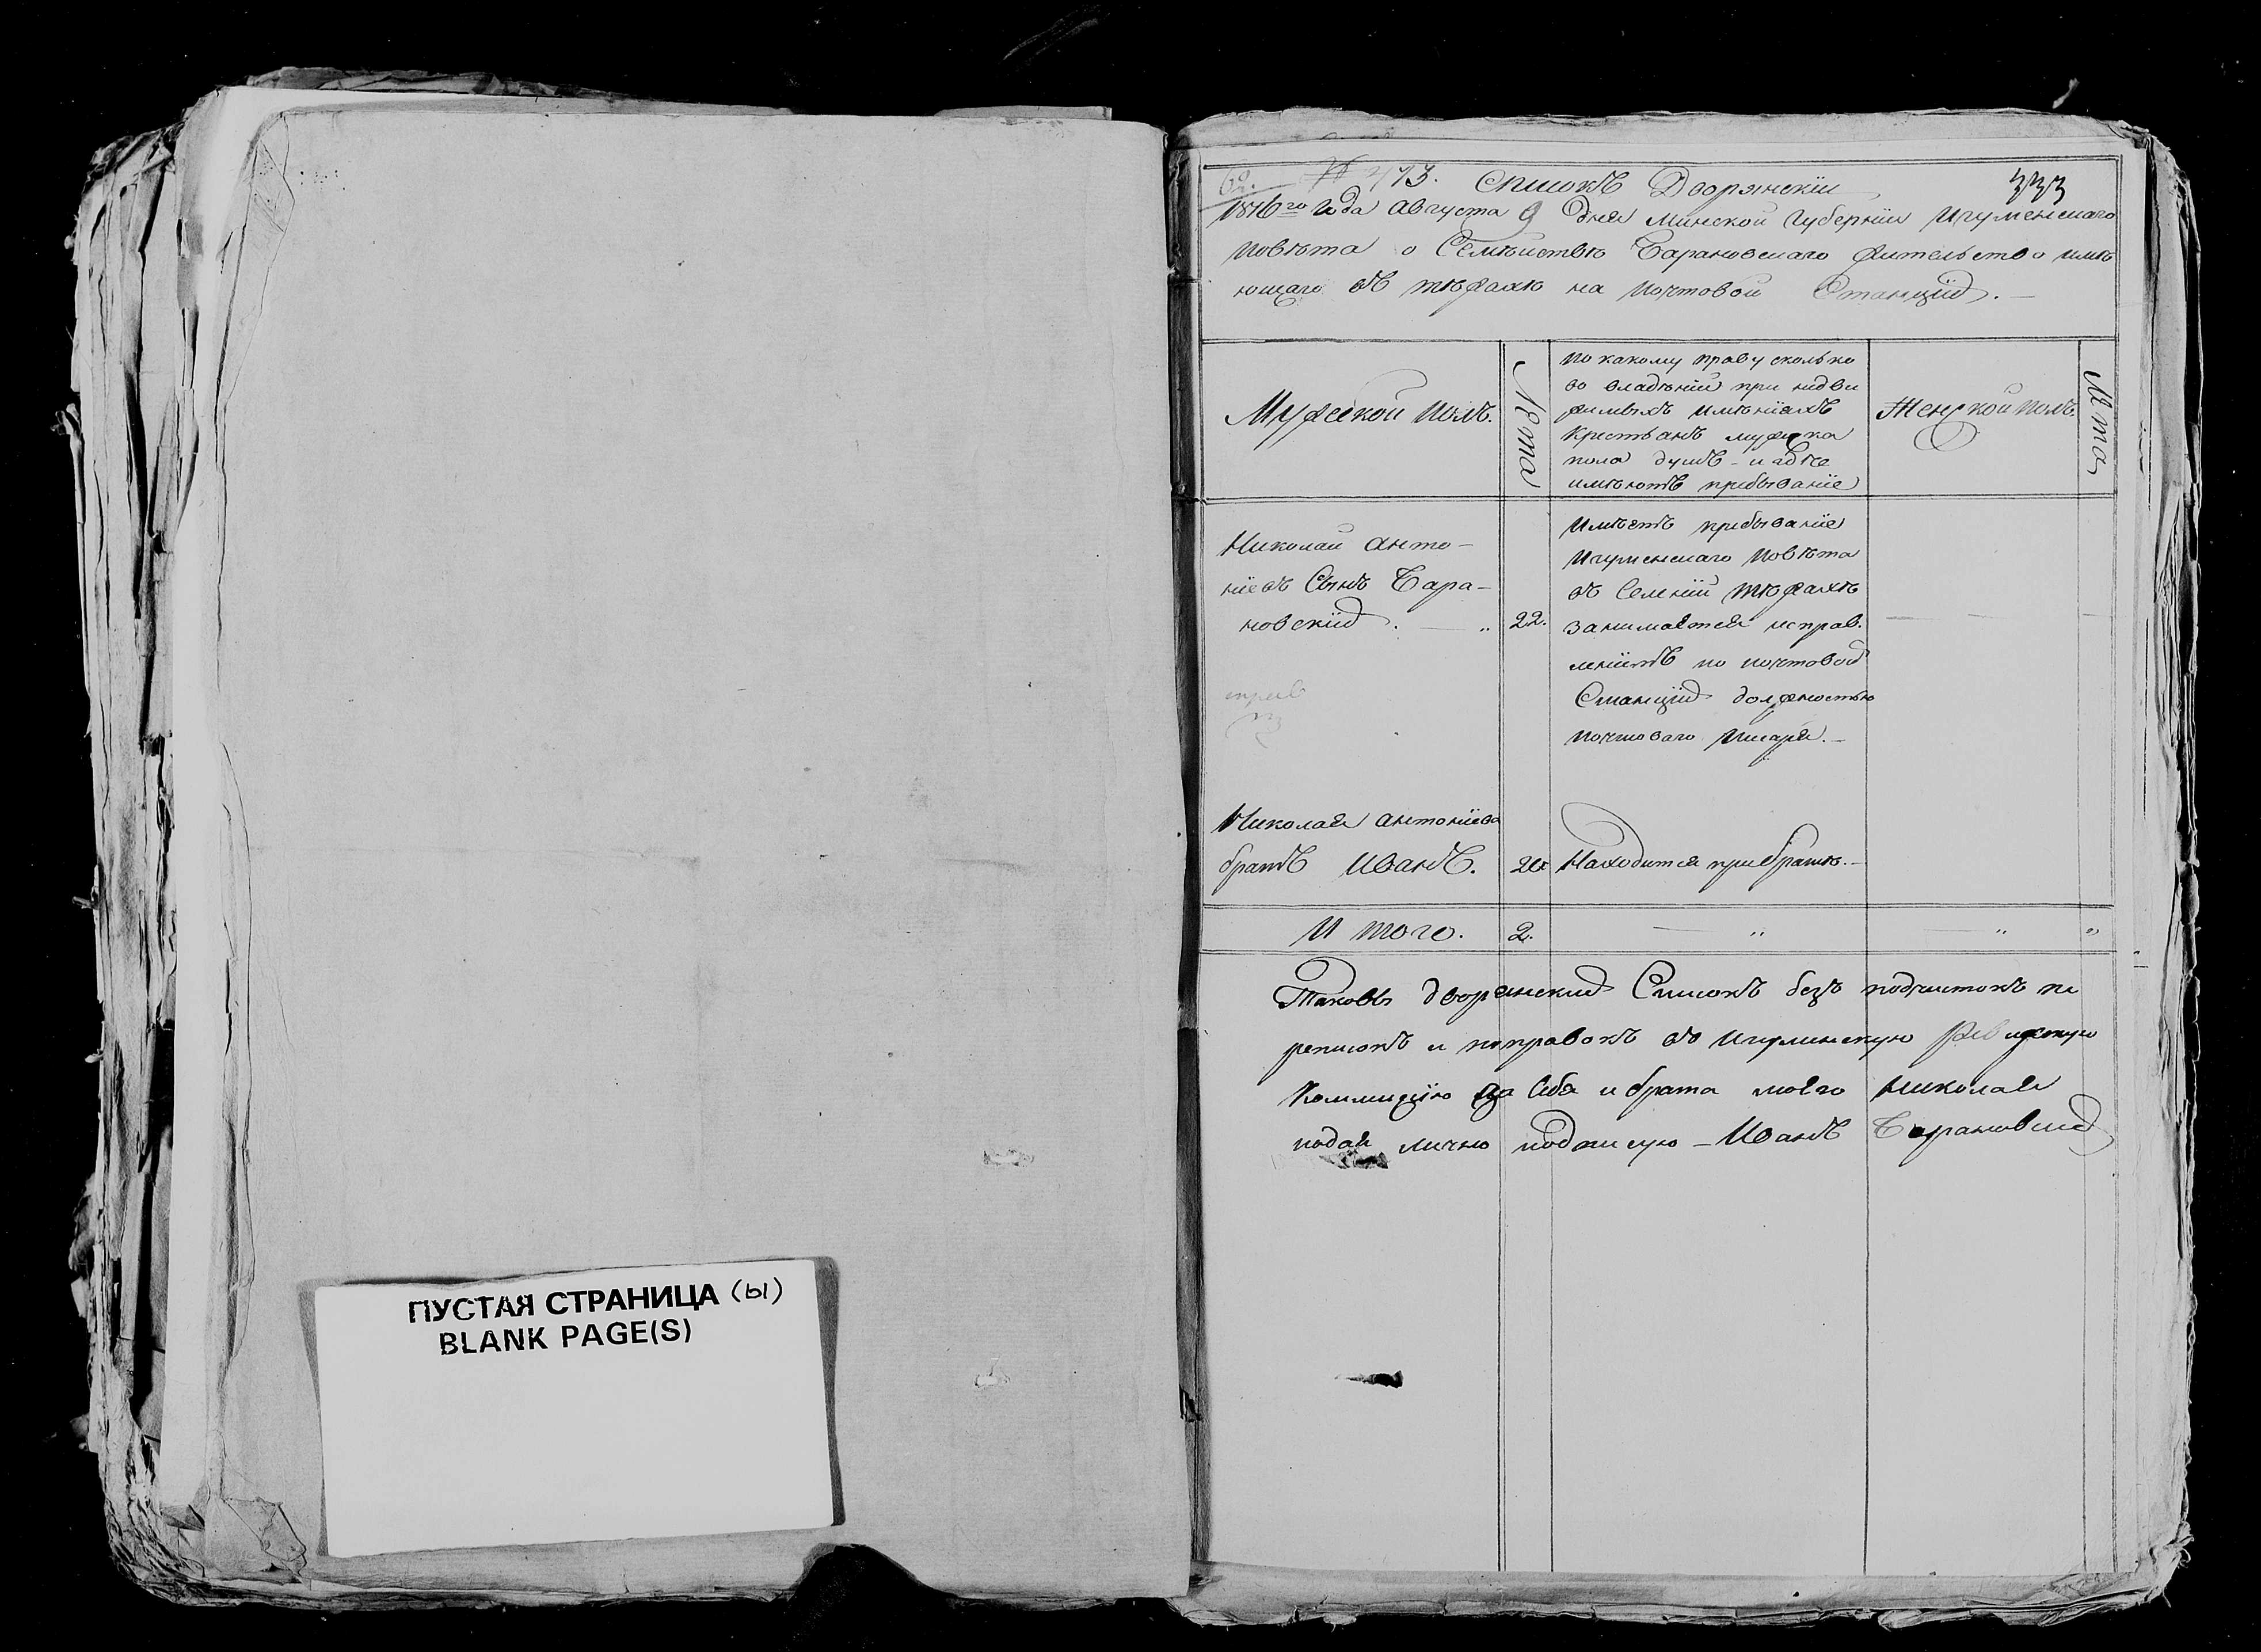 ПУСТАЯ СТРАНИЦА (ы)
BLANK PAGE(S)
62. № 473. Списокъ Дворянскіи 333
1816го года Августа 9 дня Минской Губерніи Игуменскаго
Повѣта о Семѣиствѣ Барановскаго жительство имѣ
ющаго въ на Почтовой Станціи.
Мужескои полъ.
Лета
по какому праву сколько
во владѣніи при недви
жимыхъ имѣніяхъ
крестьянъ мужеска
пола душъ - и гдѣ
имѣютъ пребываніе
Женскои полъ.
Лета
Николаи Анто-
ніевъ Сынъ Бара-
новскіи. 22.
Имѣетъ пребываніе
Игуменскаго Повѣта
въ Селеніи
занимается исправ.
леніемъ по почтовой
Станціи должностью
почтоваго Писаря.
Николая Антоніева
братъ Иванъ. 20 Находится при братѣ.
И того. 2.
Таковъ дворянский Списокъ безъ подчистокъ пе
реписокъ и поправокъ въ Игуменскую Ревизскую
Коммицію за себя и брата моего Николая
подая лично подписую - Иванъ Барановский